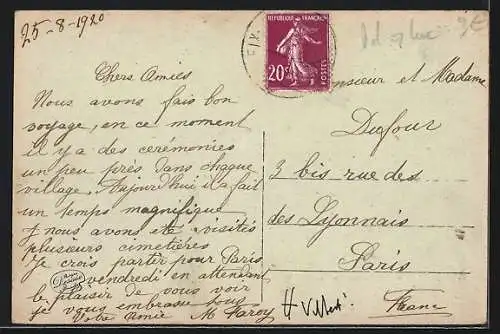 25-8-1920
Chers Amies
Nous avons fais bon
voyage, en ce moment
il y a des cérémonies
un peu près dans chaque
village. Aujourd'hui il a fait
un temps magnifique
nous avons été visités
plusieurs cimetières
Je crois partir pour Paris
vendredi en attendant
le plaisir de vous voir
je vous embrasse tous
Votre amie M
REPUBLIQUE FRANÇAISE
20c
POSTES
Monsieur et Madame
Dufour
3 bis rue des
des Lyonnais
Paris
France